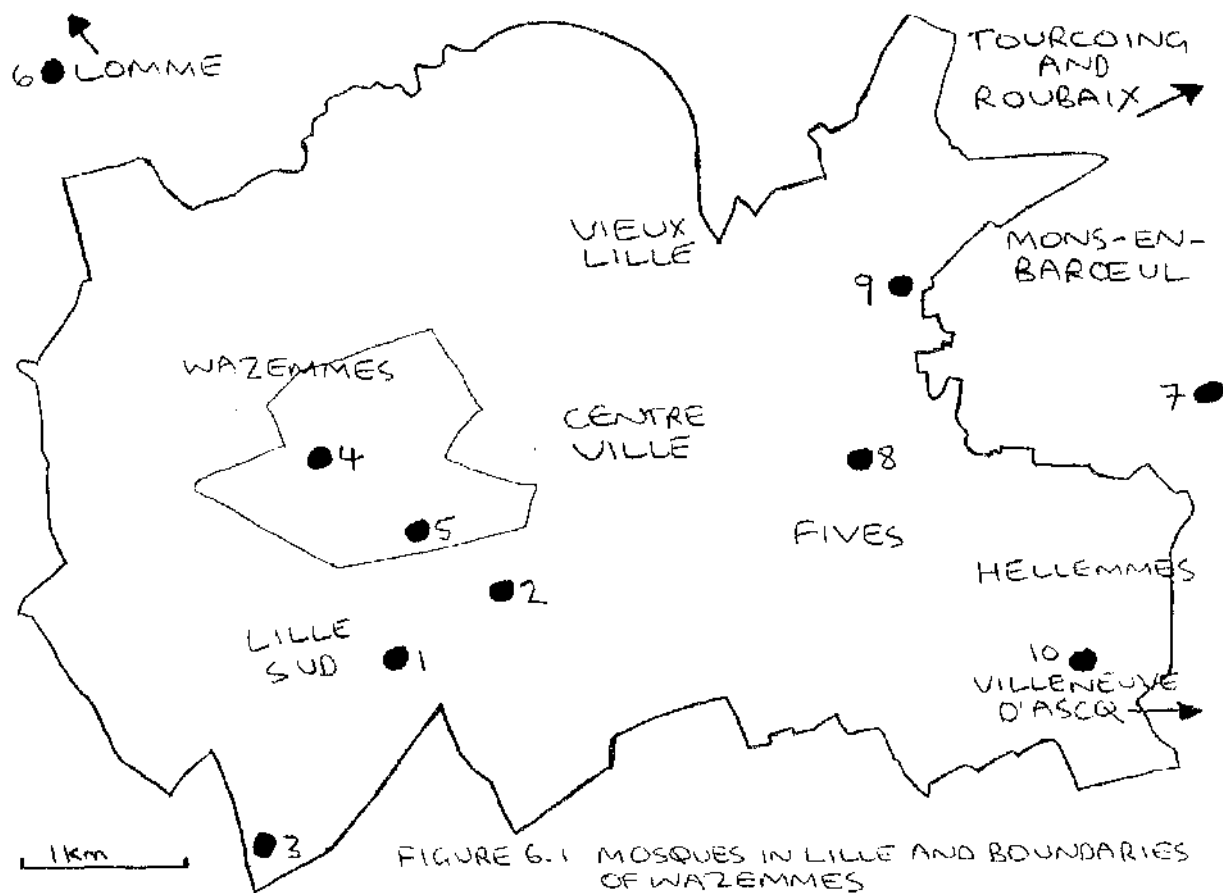 6 LOMME
TOURCOING
AND
ROUBAIX
VIEUX
LILLE
MONS-EN-
BARŒUL
9
WAZEMMES
7
CENTRE
VILLE
4
8
5
FIVES
HELLEMMES
2
LILLE
SUD
1
10
VILLENEUVE
D'ASCQ
3
1km
FIGURE 6.1 MOSQUES IN LILLE AND BOUNDARIES
OF WAZEMMES